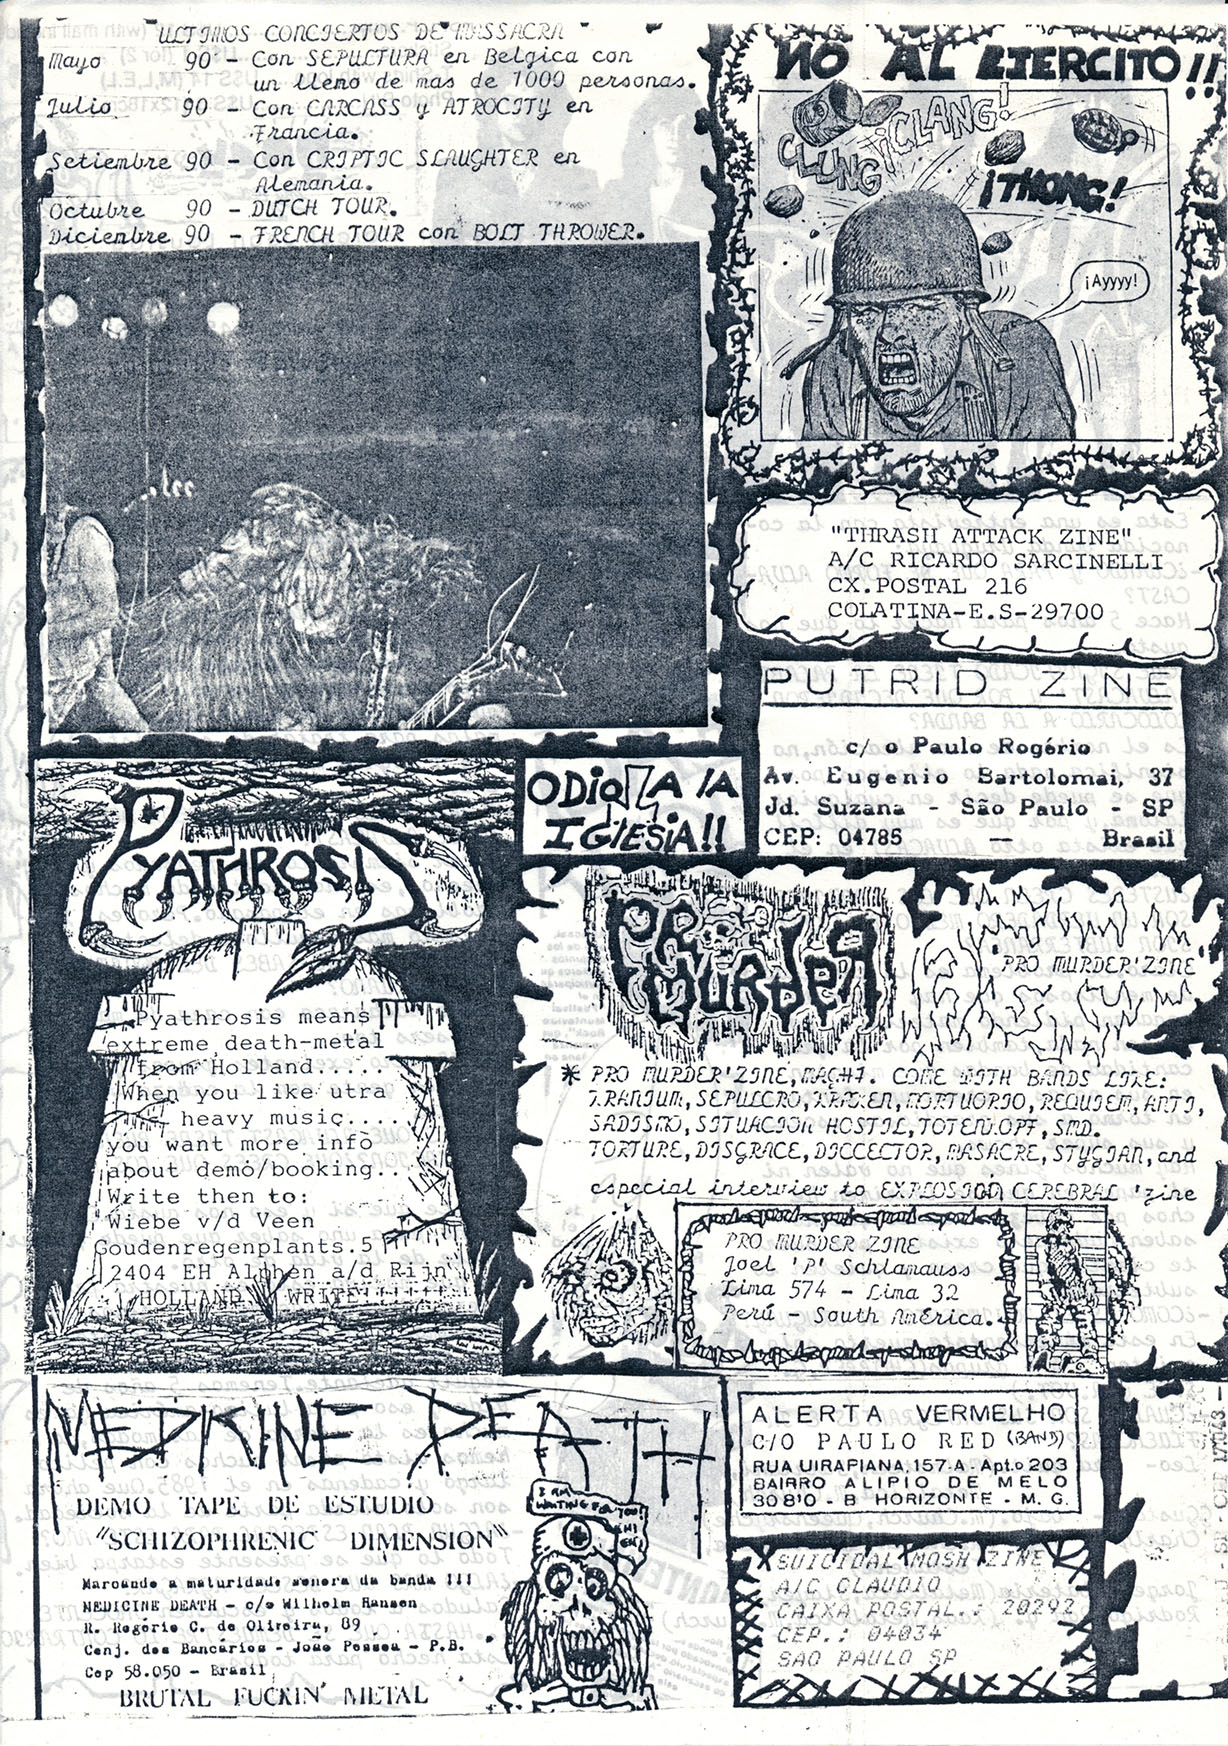 ULTIMOS CONCIERTOS DE MASSACRA
Mayo 90 - Con SEPULTURA en Belgica con
un lleno de mas de 1000 personas.
Julio 90 - Con CARCASS y ATROCITY en
Francia.
Setiembre 90 - Con CRIPTIC SLAUGHTER en
Alemania.
Octubre 90 - DUTCH TOUR.
Diciembre 90 - FRENCH TOUR con BOLT THROWER.
NO AL EJERCITO!!
CLUNG
¡CLANG!
¡THONG!
¡Ayyyy!
"THRASH ATTACK ZINE"
A/C RICARDO SARCINELLI
CX.POSTAL 216
COLATINA-E.S-29700
PUTRID ZINE
c/o Paulo Rogério
Av. Eugenio Bartolomai, 37
Jd. Suzana - São Paulo - SP
CEP: 04785 — Brasil
ODIO A LA
IGLESIA!!
PYATHROSIS
Pyathrosis means
extreme death-metal
from Holland....
When you like utra
heavy music....
you want more info
about demo/booking...
Write then to:
Wiebe v/d Veen
Goudenregenplants.5
2404 EH Alphen a/d Rijn
HOLLAND WRITE!!!!!!
PRO MURDER
PRO MURDER'ZINE
* PRO MURDER'ZINE, MAG#7. COME WITH BANDS LIKE:
SEPULCRO, MORTUORIO, REQUIEM, ANTI,
SADISMO, SITUACION HOSTIL, SMD.
TORTURE, DISGRACE, DICCECTOR, MASACRE, STYGIAN, and
especial interview to EXPLOSION CEREBRAL 'zine
PRO MURDER ZINE
Joel 'P' Schlamauss
Lima 574 - Lima 32
Perú - South América.
MEDICINE DEATH
I AM
WAITING FOR YOU!
DEMO TAPE DE ESTUDIO
"SCHIZOPHRENIC DIMENSION"
Marcando a maturidade sonora da banda !!!
MEDICINE DEATH - c/o Wilhelm Hansen
R. Rogério C. de Oliveira, 89
Conj. dos Bancários - João Pessoa - P.B.
Cep 58.050 - Brasil
BRUTAL FUCKIN' METAL
ALERTA VERMELHO
C/O PAULO RED (BAND)
RUA UIRAPIANA, 157-A - Apt.o 203
BAIRRO ALIPIO DE MELO
30810 - B HORIZONTE - M. G.
SUICIDAL MOSH ZINE
A/C CLAUDIO
CAIXA POSTAL.: 20292
CEP.: 04034
SAO PAULO SP